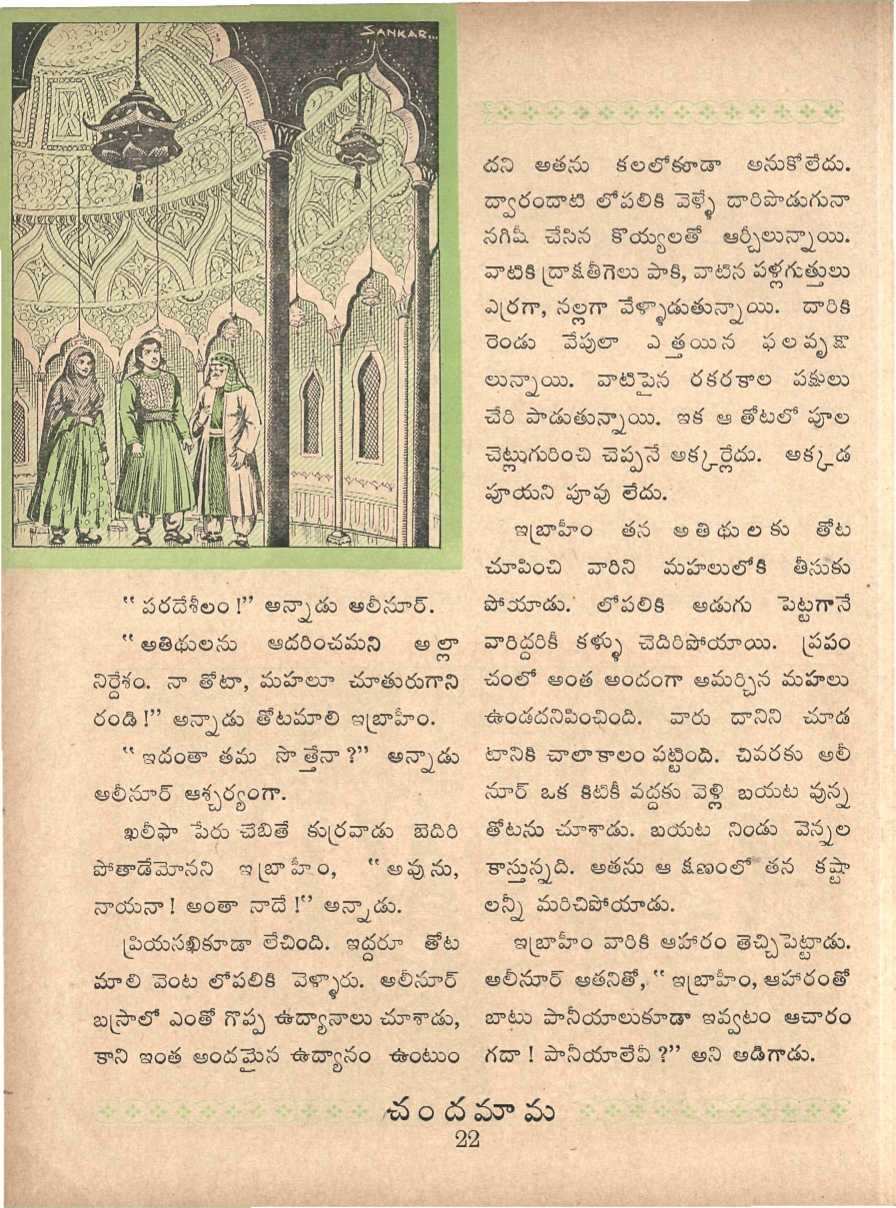 SANKAR...
“పరదేశీలం!” అన్నాడు అలీనూర్.
“అతిథులను ఆదరించమని అల్లా
నిర్దేశం. నా తోటా, మహలూ చూతురుగాని
రండి!” అన్నాడు తోటమాలి ఇబ్రాహీం.
“ఇదంతా తమ సొత్తేనా?” అన్నాడు
అలీనూర్ ఆశ్చర్యంగా.
ఖలీఫా పేరు చేబితే కుర్రవాడు బెదిరి
పోతాడేమోనని ఇబ్రాహీం, “అవును,
నాయనా! అంతా నాదే!” అన్నాడు.
ప్రియసఖికూడా లేచింది. ఇద్దరూ తోట
మాలి వెంట లోపలికి వెళ్ళారు. అలీనూర్
బస్రాలో ఎంతో గొప్ప ఉద్యానాలు చూశాడు,
కాని ఇంత అందమైన ఉద్యానం ఉంటుం
దని అతను కలలోకూడా అనుకోలేదు.
ద్వారందాటి లోపలికి వెళ్ళే దారిపొడుగునా
నగిషీ చేసిన కొయ్యలతో ఆర్చీలున్నాయి.
వాటికి ద్రాక్షతీగెలు పాకి, వాటిన పళ్లగుత్తులు
ఎర్రగా, నల్లగా వేళ్ళాడుతున్నాయి. దారికి
రెండు వేపులా ఎత్తయిన ఫలవృక్షా
లున్నాయి. వాటిపైన రకరకాల పక్షులు
చేరి పాడుతున్నాయి. ఇక ఆ తోటలో పూల
చెట్లుగురించి చెప్పనే అక్కర్లేదు. అక్కడ
పూయని పూవు లేదు.
ఇబ్రాహీం తన అతిథులకు తోట
చూపించి వారిని మహలులోకి తీసుకు
పోయాడు. లోపలికి అడుగు పెట్టగానే
వారిద్దరికీ కళ్ళు చెదిరిపోయాయి. ప్రపం
చంలో అంత అందంగా అమర్చిన మహలు
ఉండదనిపించింది. వారు దానిని చూడ
టానికి చాలాకాలం పట్టింది. చివరకు అలీ
నూర్ ఒక కిటికీ వద్దకు వెళ్లి బయట వున్న
తోటను చూశాడు. బయట నిండు వెన్నల
కాస్తున్నది. అతను ఆ క్షణంలో తన కష్టా
లన్నీ మరిచిపోయాడు.
ఇబ్రాహీం వారికి ఆహారం తెచ్చిపెట్టాడు.
అలీనూర్ అతనితో, “ఇబ్రాహీం, ఆహారంతో
బాటు పానీయాలుకూడా ఇవ్వటం ఆచారం
గదా! పానీయాలేవీ?” అని అడిగాడు.
చందమామ
22